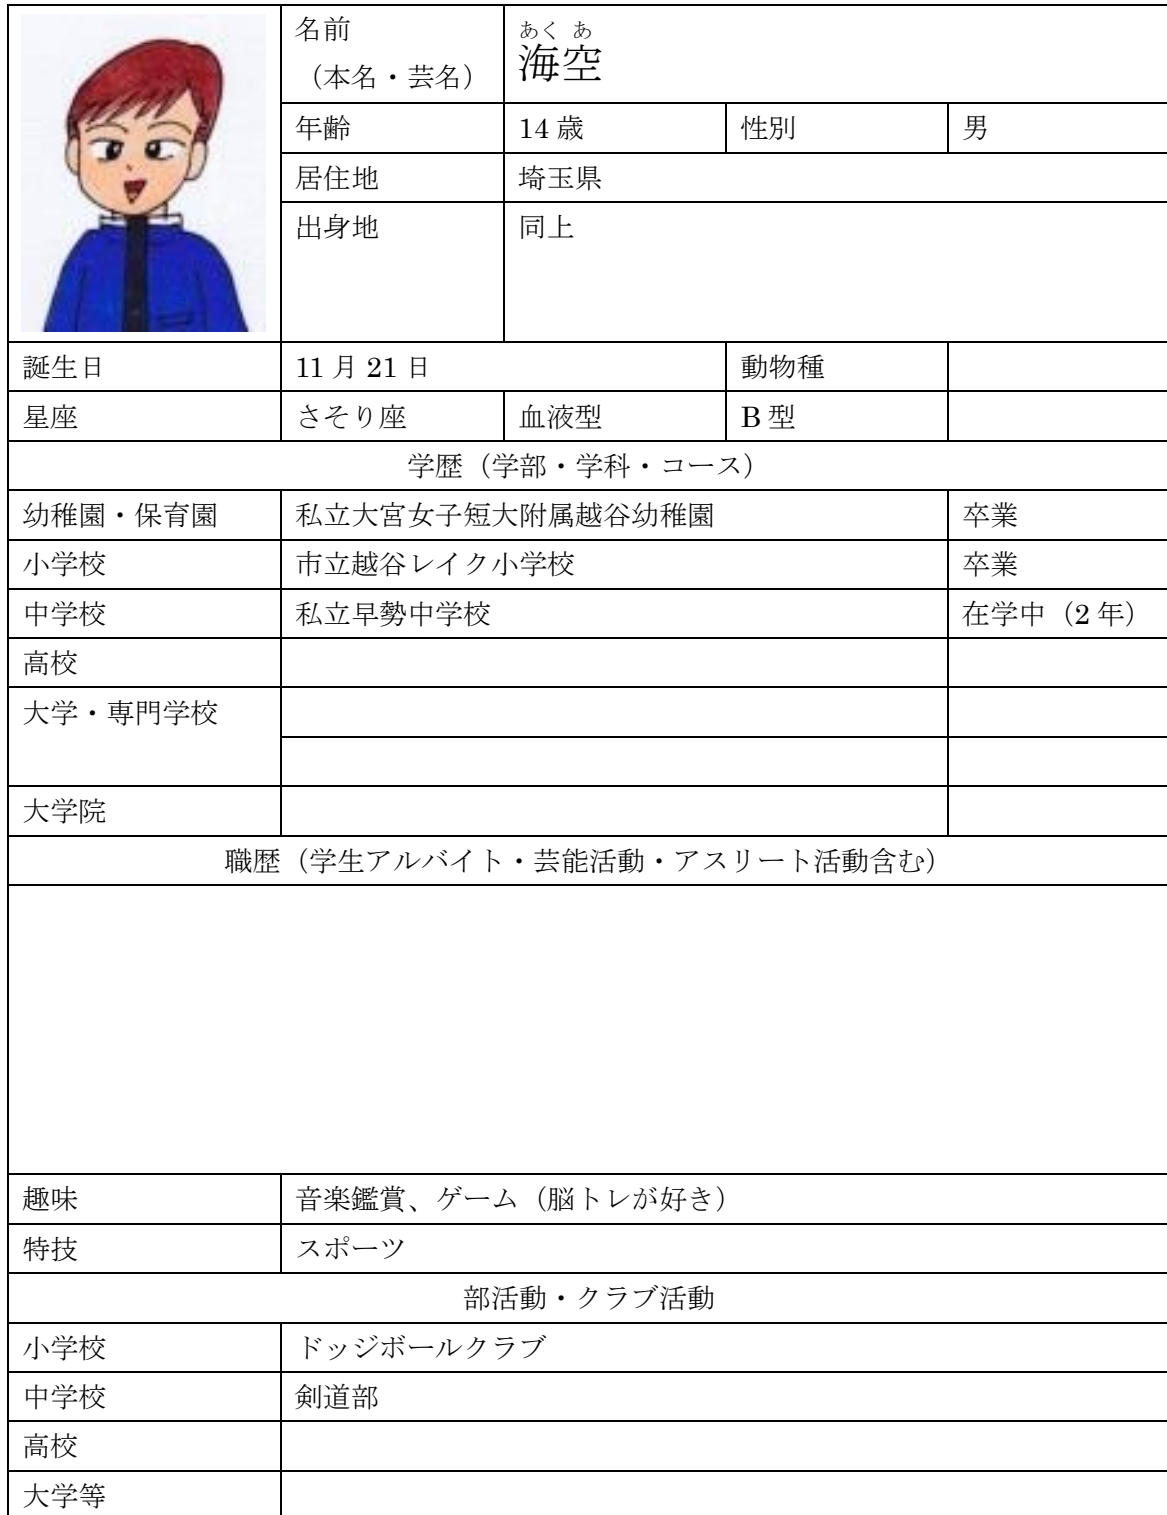 名前 あくあ
（本名・芸名） 海空
年齢 14歳 性別 男
居住地 埼玉県
出身地 同上
誕生日 11月21日 動物種
星座 さそり座 血液型 B型
学歴（学部・学科・コース）
幼稚園・保育園 私立大宮女子短大附属越谷幼稚園 卒業
小学校 市立越谷レイク小学校 卒業
中学校 私立早勢中学校 在学中（2年）
高校
大学・専門学校
大学院
職歴（学生アルバイト・芸能活動・アスリート活動含む）
趣味 音楽鑑賞、ゲーム（脳トレが好き）
特技 スポーツ
部活動・クラブ活動
小学校 ドッジボールクラブ
中学校 剣道部
高校
大学等